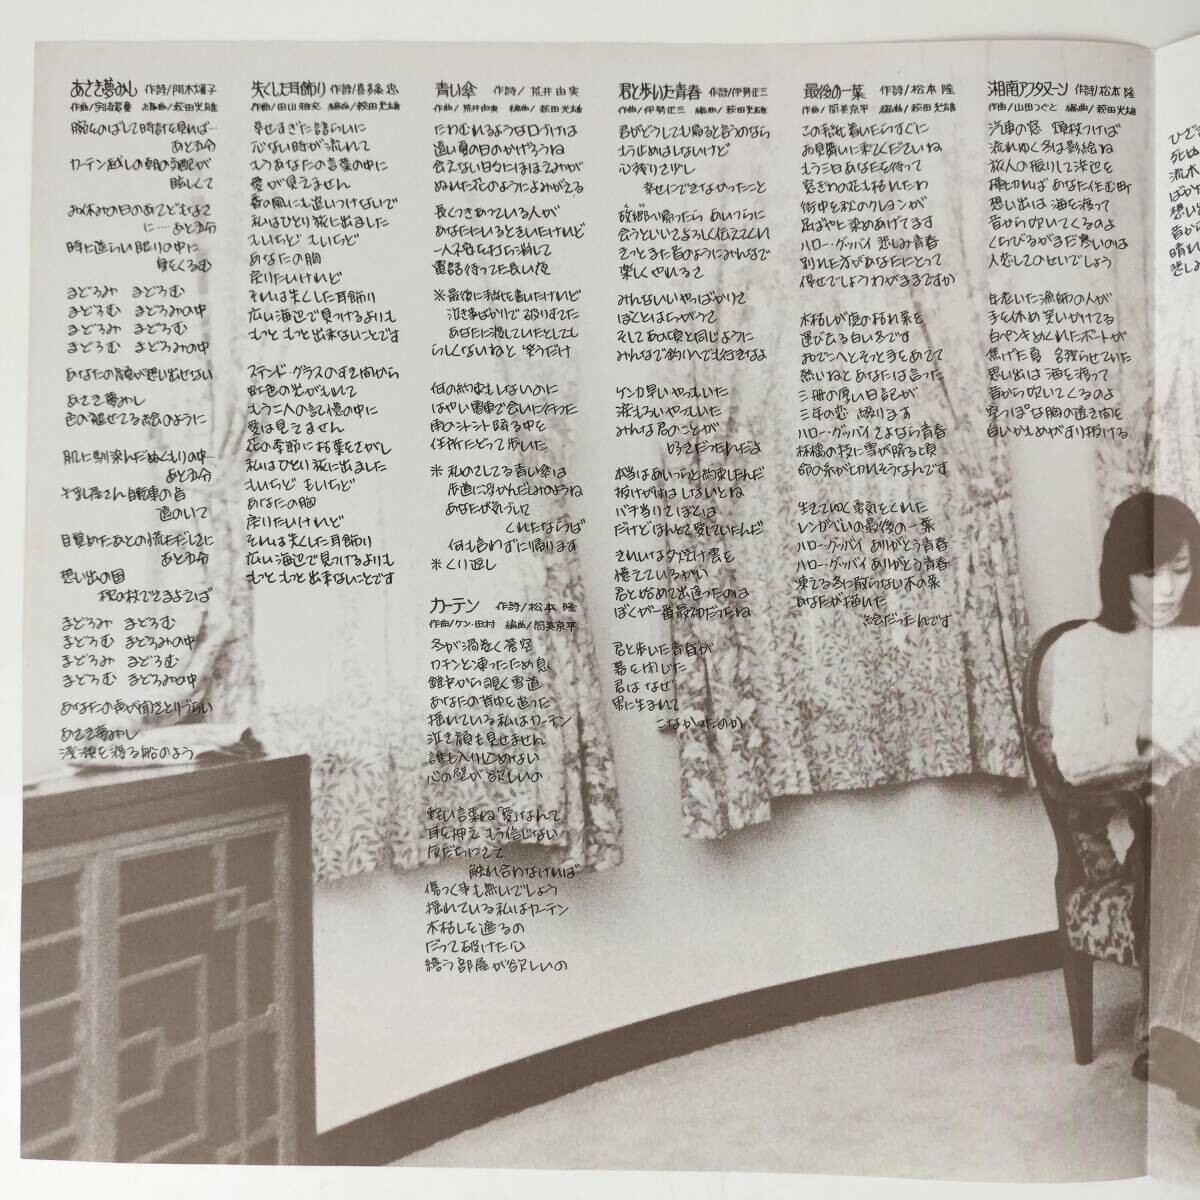 あさき夢みし 作詩/阿木燿子
作曲/宇崎竜童 編曲/萩田光雄
腕をのばして時計を見れば…
あと五分
カーテン越しの朝の気配が
眩しくて
お休みの日のあてどもなさ
に……あと五分
時に逆らい眠りの中に
身をくるむ
まどろみ まどろむ
まどろむ まどろみの中
まどろみ まどろむ
まどろむ まどろみの中
あなたの顔が想い出せない
あさき夢みし
色の褪せてる絵のように
肌に馴染んだぬくもりの中…
あと五分
牛乳屋さん自転車の音
遠のいて
目覚めたあとの慌ただしさに
あと五分
想い出の国
枕の杖でさまよえば
まどろみ まどろむ
まどろむ まどろみの中
まどろみ まどろむ
まどろむ まどろみの中
あなたの声が聞きとりづらい
あさき夢みし
浅瀬を渡る船のよう
失くした耳飾り 作詩/喜多條 忠
作曲/田山雅充 編曲/萩田光雄
幸せすぎた語らいに
危ない時が流れて
もうあなたの言葉の中に
愛が見えません
春の風にも追いつけないで
私はひとり旅に出ました
もいちど もいちど
あなたの胸
戻りたいけれど
それは失くした耳飾り
広い海辺で見つけるよりも
もっと もっと出来ないことです
ステンド・グラスのすき間から
虹色の光がもれて
もう二人の記憶の中に
愛は見えません
花の季節に枯葉をさがし
私はひとり旅に出ました
もいちど もいちど
あなたの胸
戻りたいけれど
それは失くした耳飾り
広い海辺で見つけるよりも
もっと もっと出来ないことです
青い傘 作詩/荒井由実
作曲/荒井由実 編曲/萩田光雄
たわむれるような口づけは
遠い夏の日のかげろうね
会えない日々にほほえみが
ぬれた花のようによみがえる
長くつきあっている人が
あなたにいるときいたけれど
一人不安を打ち消して
電話待ってた長い夜
※最後に手紙を書いたけれど
泣き事ばかりで破りすてた
あなたに渡していたとしても
らしくないねと 笑うだけ
何の約束もしないのに
はやい電車で会いに行った
雨のにじむ 降る中を
住所たどって歩いた
※私のさしてる青い傘は
歩道に浮かんだしみのようね
あなたが気づいて
くれたならば
何も言わずに帰ります
※くり返し
カーテン 作詩/松本 隆
作曲/ケン・田村 編曲/筒美京平
冬が渦巻く蒼空
カチンと凍ったため息
鎧戸から覗く雪道
あなたの背中を追った
揺れている私はカーテン
泣き顔を見せません
誰も入りこめない
心の壁が欲しいの
軽い言葉ね「愛」なんて
耳を押え もう信じない
友だちにさえ
触れ合わなければ
傷つく事も無いでしょう
揺れている私はカーテン
木枯しを遮るの
だって破けた心
繕う部屋が欲しいの
君と歩いた青春 作詩/伊勢正三
作曲/伊勢正三 編曲/萩田光雄
君がどうしても帰ると言うのなら
もう止めはしないけど
心残りさ少し
幸せにできなかったこと
故郷へ帰ったら あいつらに
会うといいさよろしく伝えてくれ
きっとまた昔のようにみんなで
楽しくやれるさ
みんないいやつばかりさ
ぼくとはちがうさ
そしてあの頃と同じように
みんなで釣りへでも行きなよ
ケンカ早いやつもいた
涙もろいやつもいた
みんな君のことが
好きだったんだよ
本当はあいつらと約束したんだ
抜けがけはしないとね
バチ当りさぼくは
だけどほんとさ愛していたんだ
きれいな夕焼け雲を
憶えているかい
君と始めて出逢ったのは
ぼくが一番最初だったね
君と歩いた青春が
幕を閉じた
君はなぜ
男に生まれて
こなかったのか
最後の一葉 作詩/松本 隆
作曲/筒美京平 編曲/萩田光雄
この手紙着いたらすぐに
お見舞いに来てくださいね
もう三日あなたを待って
窓ぎわの花も枯れたわ
街中を秋のクレヨンが
足ばやに染めあげてます
ハロー・グッバイ 悲しみ青春
別れた方があなたにとって
倖せでしょう わがままですか
木枯しが庭の枯れ葉を
運び去る白い冬です
おでこへとそっと手をあてて
熱いねとあなたは言った
三冊の厚い日記が
三年の恋 綴ります
ハロー・グッバイ さよなら青春
林檎の枝に雪が降る頃
命の糸が切れそうなんです
生きてゆく勇気をくれた
レンガべいの最後の一葉
ハロー・グッバイ ありがとう青春
ハロー・グッバイ ありがとう青春
凍える冬に散らない木の葉
あなたが描いた
絵だったんです
湘南アフタヌーン 作詩/松本 隆
作曲/山田つぐと 編曲/萩田光雄
汽車の窓 頬杖つけば
流れゆく冬は影絵ね
旅人の振りして浜辺を
横切れば あなた住む町
想い出は 海を渡って
昔から吹いてくるのよ
くちびるがまだ寒いのは
人恋しさのせいでしょう
年老いた漁師の人が
手を休め笑いかけてる
白ペンキめくれたボートが
焦げた夏 名残らせていた
思い出は 海を渡って
昔から吹いてくるのよ
空っぽな胸の透き間を
白いかもめがすり抜ける
ひざ
死ぬ
流木
ばか
想い
昔か
晴れ
悲しみ